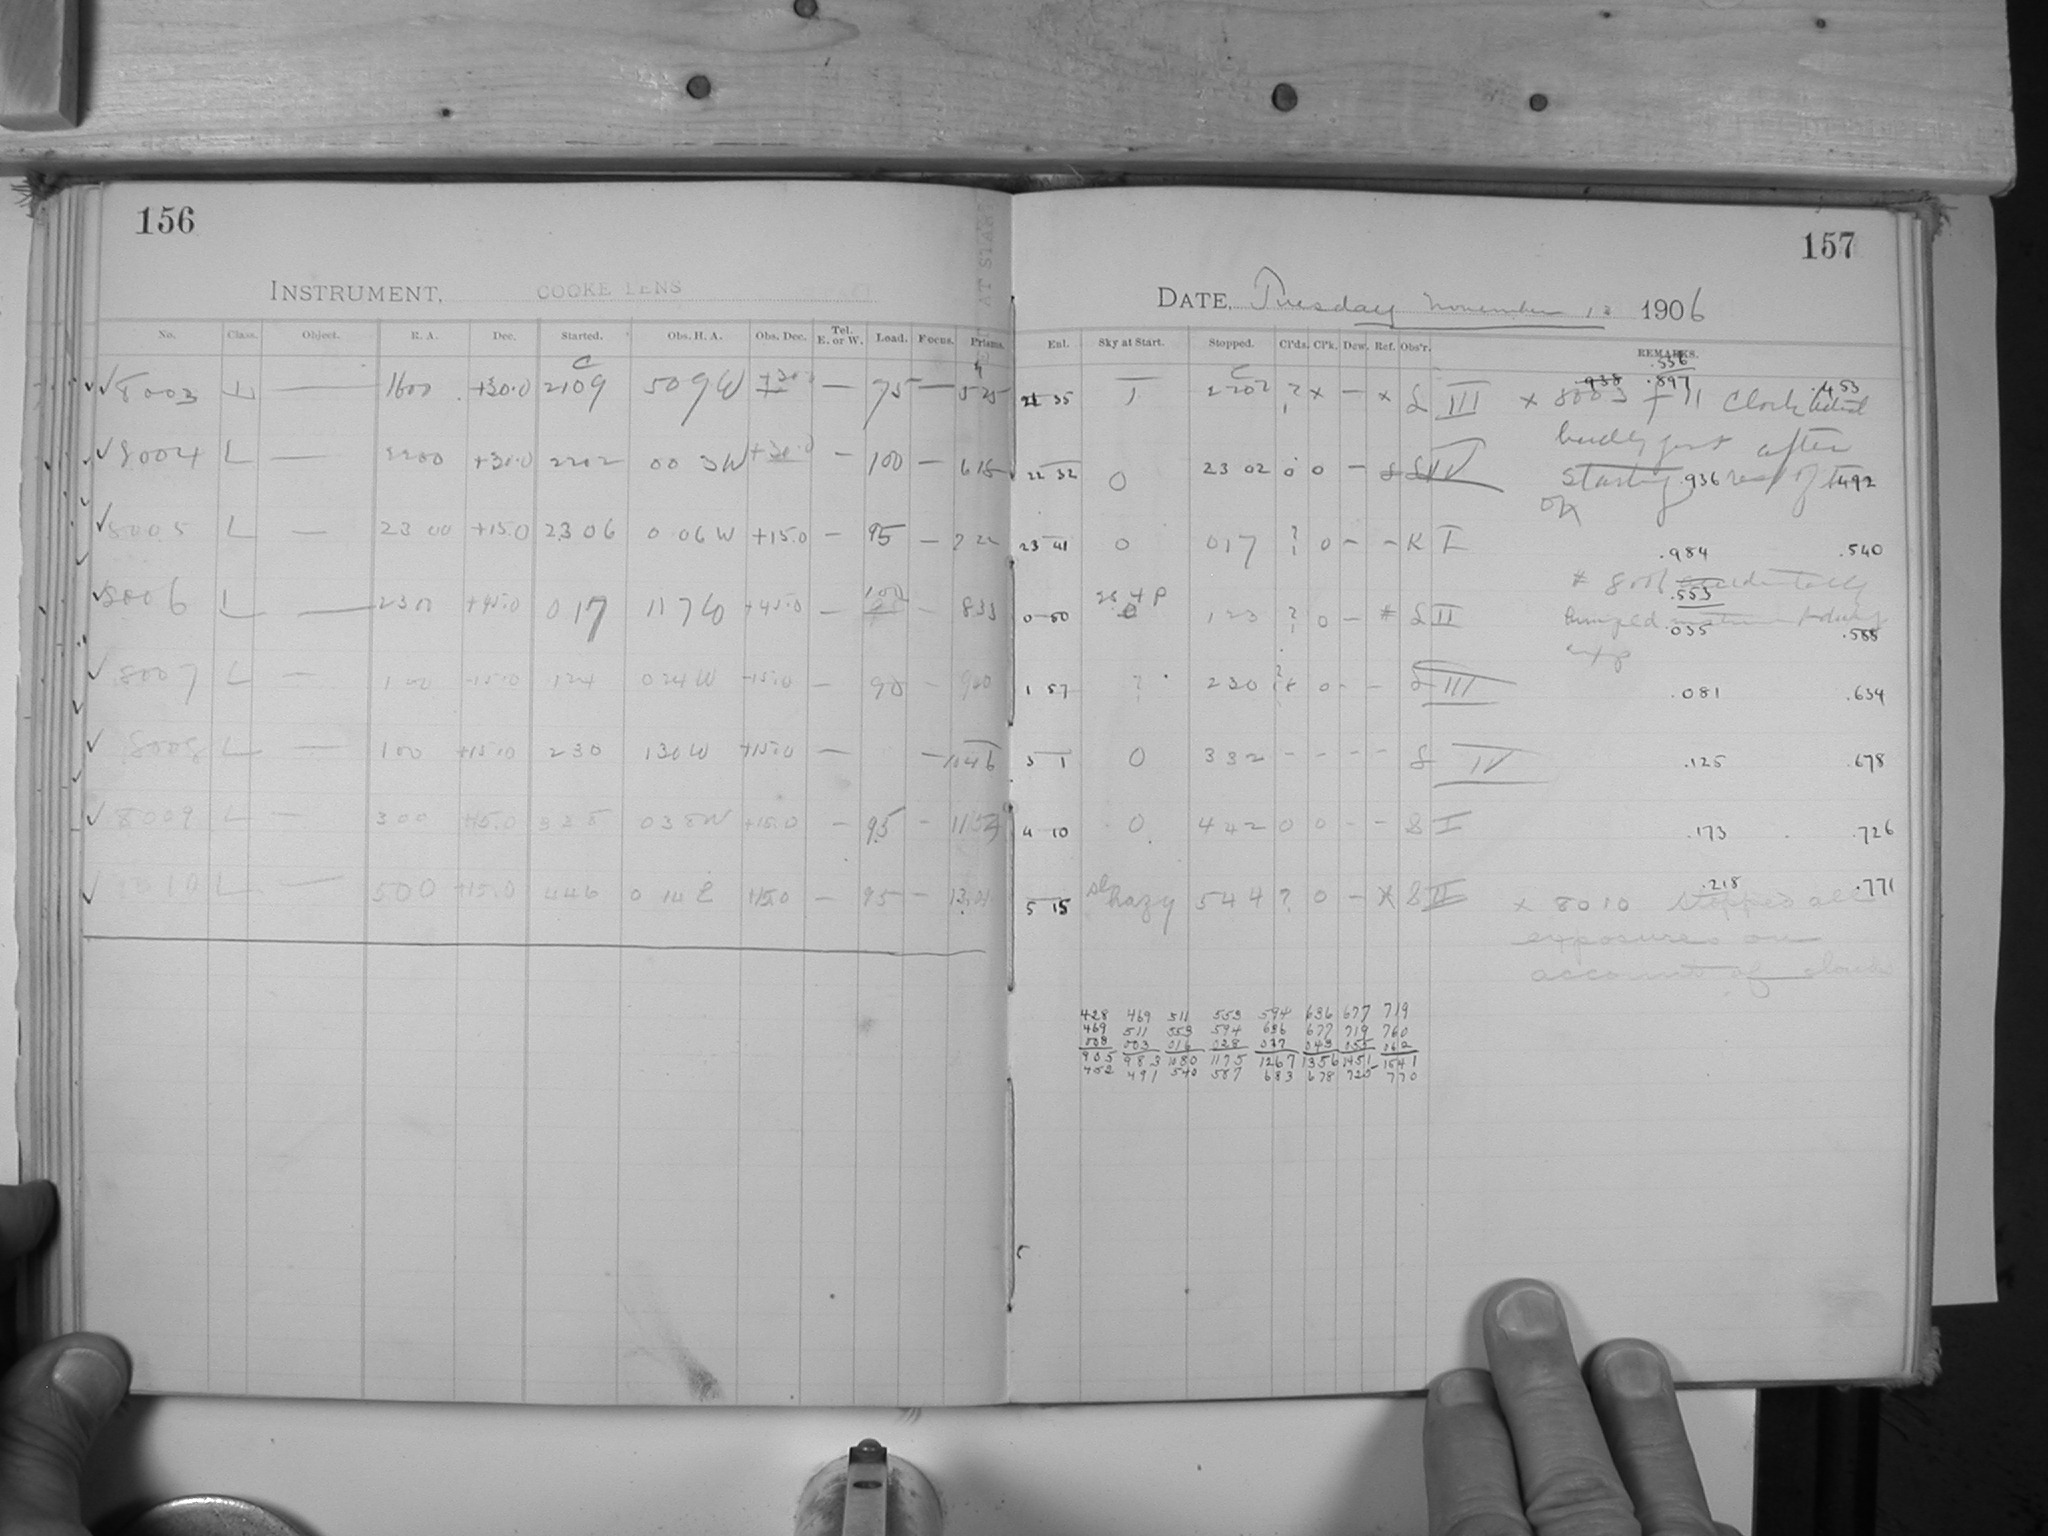 156
INSTRUMENT, COOKE LENS
No. Class. Object. R. A. Dec. Started. Obs. H. A. Obs. Dec. Tel. E. or W. Load. Focus. Prisms.
8003 L — 1600 +30.0 2109 509W +30.0 — 75 — 525
8004 L — 2200 +30.0 2202 00 3W +30.0 — 100 — 615
8005 L — 23 00 +15.0 2306 0 06 W +15.0 — 95 —
8006 L — 2300 +45.0 017 117W +45.0 — 100 — 833
8007 L — 100 124 024W — 90 —
8008 L — 100 +15.0 230 130W +15.0 — — 1046
8009 L — 300 +15.0 338 038W +15.0 — 95 — 1154
8010 L — 500 +15.0 446 0 14 E +15.0 — 95 — 1301
157
DATE, Tuesday November 13 1906
Ent. Sky at Start. Stopped. Cl'ds. Cl'k. Dew. Ref. Obs'r. REMARKS.
.536
21 35 2202 ? x — x S III x 8003 + 11 Clock acted .938 .897 .453
badly just after
22 32 0 2302 0 0 — S IV starting rest of .936 .492
OK
23 41 0 017 ? 0 — — K I .984 .540
* 8006 accidentally
.553
0 50 123 ? 0 — * S II bumped instrument during .035 .588
exp
1 57 ? 230 ? 0 - - S III .081 .634
3 1 0 332 - - - - S IV .125 .678
4 10 0 442 0 0 - - S I .173 .726
5 15 sl hazy 544 ? 0 — x S II x 8010 stopped all .218 .771
exposures on
account of clouds
428 469 511 553 594 636 677 719
469 511 553 594 636 677 719 760
008 003 016 028 037 043 055 062
905 983 1080 1175 1267 1356 1451 1541
452 491 540 587 633 678 725 770